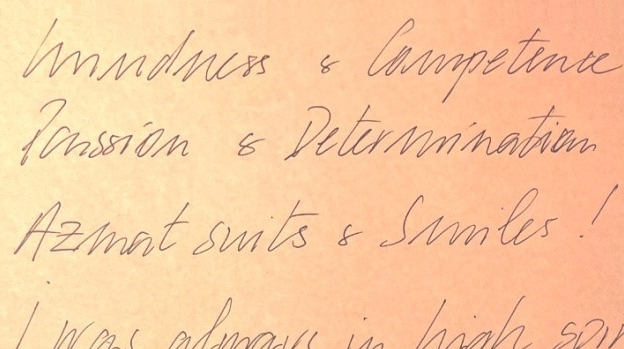 Kindness & Competence
Passion & Determination
Azmat suits & Smiles!
I was always in high